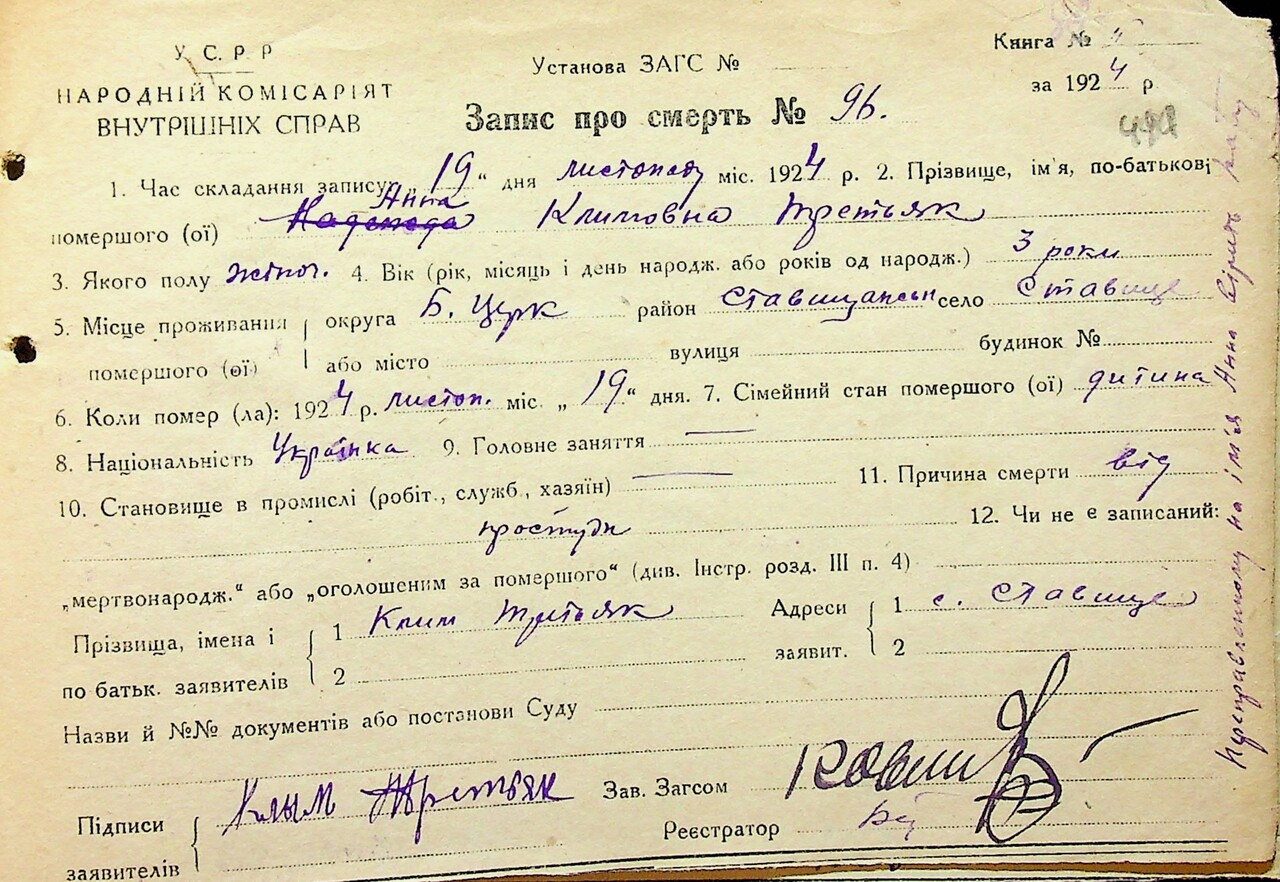 У. С. Р. Р
НАРОДНІЙ КОМІСАРІЯТ
ВНУТРІШНІХ СПРАВ
Установа ЗАГС №
Книга №
за 1924 р
Запис про смерть № 96.
1. Час складання запису: „19“ дня листопаду міс. 1924 р. 2. Прізвище, ім'я, по-батькові
Анна
помершого (ої) Надежда Климовна Третьяк
3. Якого полу жіноч. 4. Вік (рік, місяць і день народж. або років од народж.) 3 роки
5. Місце проживання округа Б. Церк район Ставищанськ село Ставище
помершого (ої) або місто вулиця будинок №
6. Коли помер (ла): 1924 р. листоп. міс. „19“ дня. 7. Сімейний стан помершого (ої) дитина
8. Національність Українка 9. Головне заняття —
10. Становище в промислі (робіт., служб., хазяїн) — 11. Причина смерти від
простуди 12. Чи не є записаний:
„мертвонародж.“ або „оголошеним за помершого“ (див. Інстр. розд. III п. 4)
Прізвища, імена і 1 Клим Третьяк Адреси 1 с. Ставище
по батьк. заявителів 2 заявит. 2
Назви й №№ документів або постанови Суду
Підписи Клым Третьяк Зав. Загсом
заявителів Реєстратор
Переправленному на ім'я Анна вірить